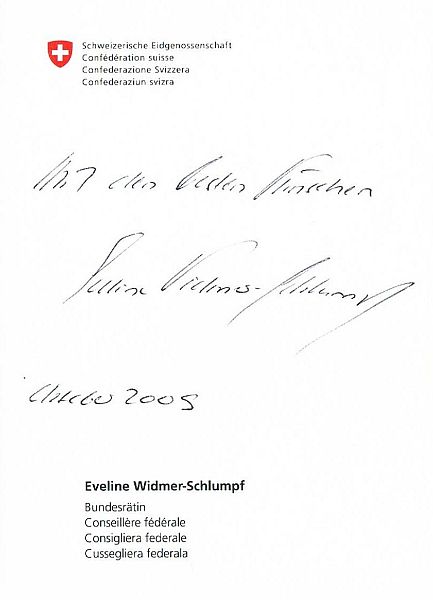 Schweizerische Eidgenossenschaft
Confédération suisse
Confederazione Svizzera
Confederaziun svizra
Mit den besten Wünschen
Eveline Widmer-Schlumpf
Oktober 2009
Eveline Widmer-Schlumpf
Bundesrätin
Conseillère fédérale
Consigliera federale
Cussegliera federala